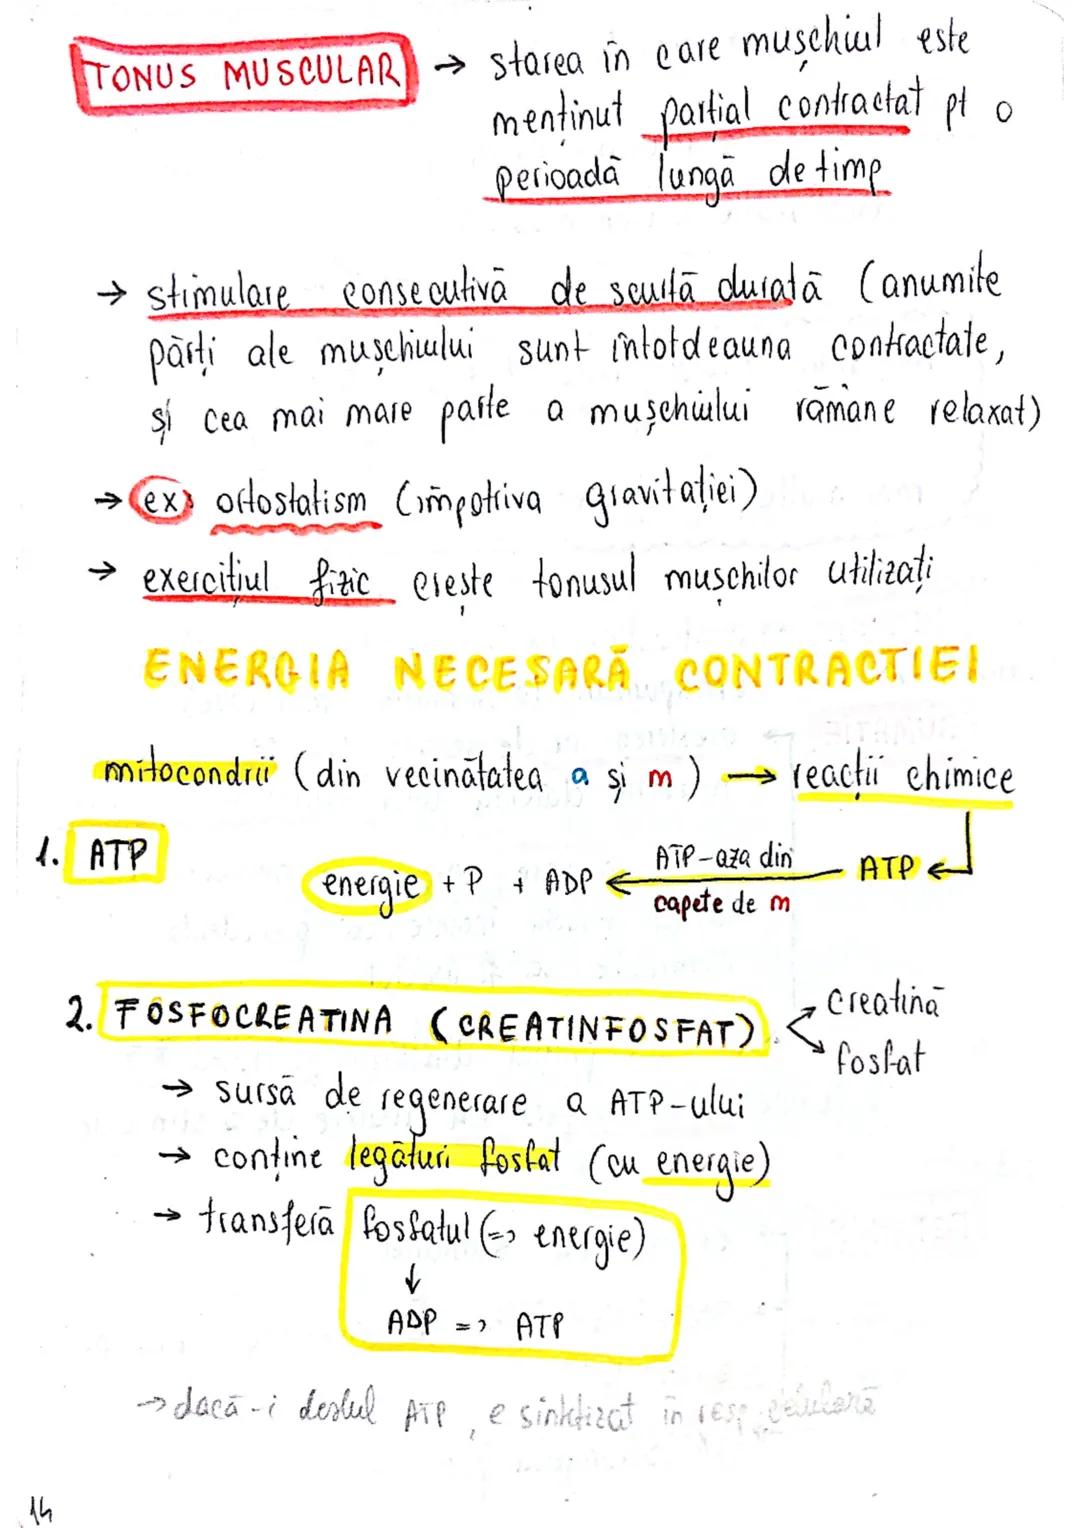 TONUS MUSCULAR → starea în care mușchiul este
menținut parțial contractat pt o
perioadă lungă de timp
→ stimulare consecutivă de scurtă durată (anumite
părți ale mușchiului sunt întotdeauna contractate,
și cea mai mare parte a mușchiului rămâne relaxat)
→ ex: ortostatism (împotriva gravitației)
→ exercițiul fizic crește tonusul mușchilor utilizați
ENERGIA NECESARĂ CONTRACTIEI
mitocondrii (din vecinătatea a și m) → reacții chimice
1. ATP
energie + P + ADP ← ATP-aza din ATP ←
capete de m
2. FOSFOCREATINA (CREATINFOSFAT) → creatină
→ fosfat
→ sursă de regenerare a ATP-ului
→ conține legături fosfat (cu energie)
→ transferă fosfatul (=> energie)
↓
ADP => ATP
→ dacă-i destul ATP, e sintetizat în resp celulară
14